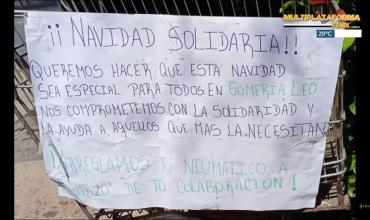 MULTIPLATAFORMA
FENIX
29°C
¡¡ NAVIDAD SOLIDARIA!!
QUEREMOS HACER QUE ESTA NAVIDAD
SEA ESPECIAL PARA TODOS EN GOMERIA LEO
NOS COMPROMETEMOS CON LA SOLIDARIDAD Y
LA AYUDA A AQUELLOS QUE MAS LA NECESITAN
ARREGLAMOS TU NEUMATICO A
DE TU COLABORACION!